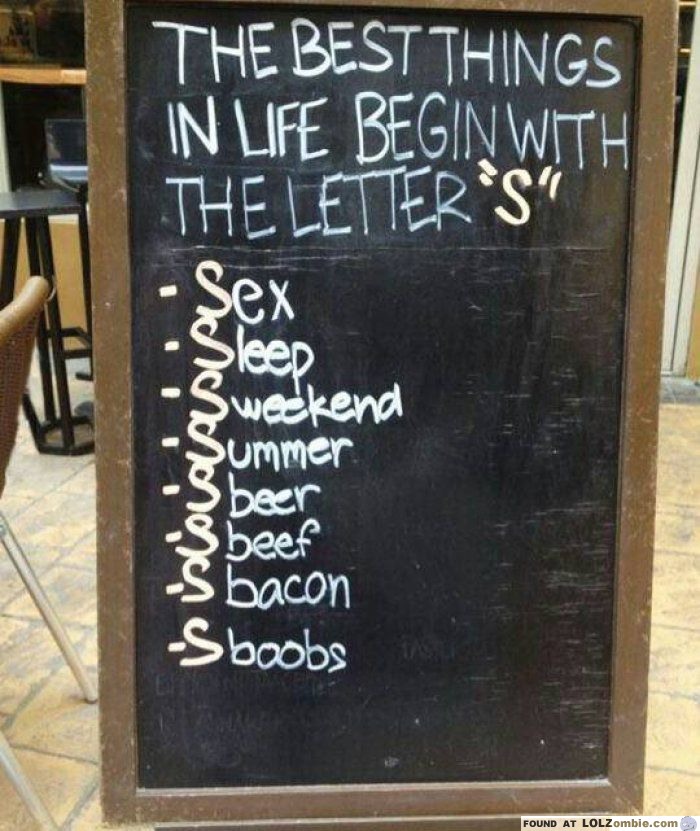 THE BEST THINGS
IN LIFE BEGIN WITH
THE LETTER "S"
- Sex
- Sleep
- Sweekend
- Summer
- Sbeer
- Sbeef
- Sbacon
- Sboobs
FOUND AT LOLZombie.com